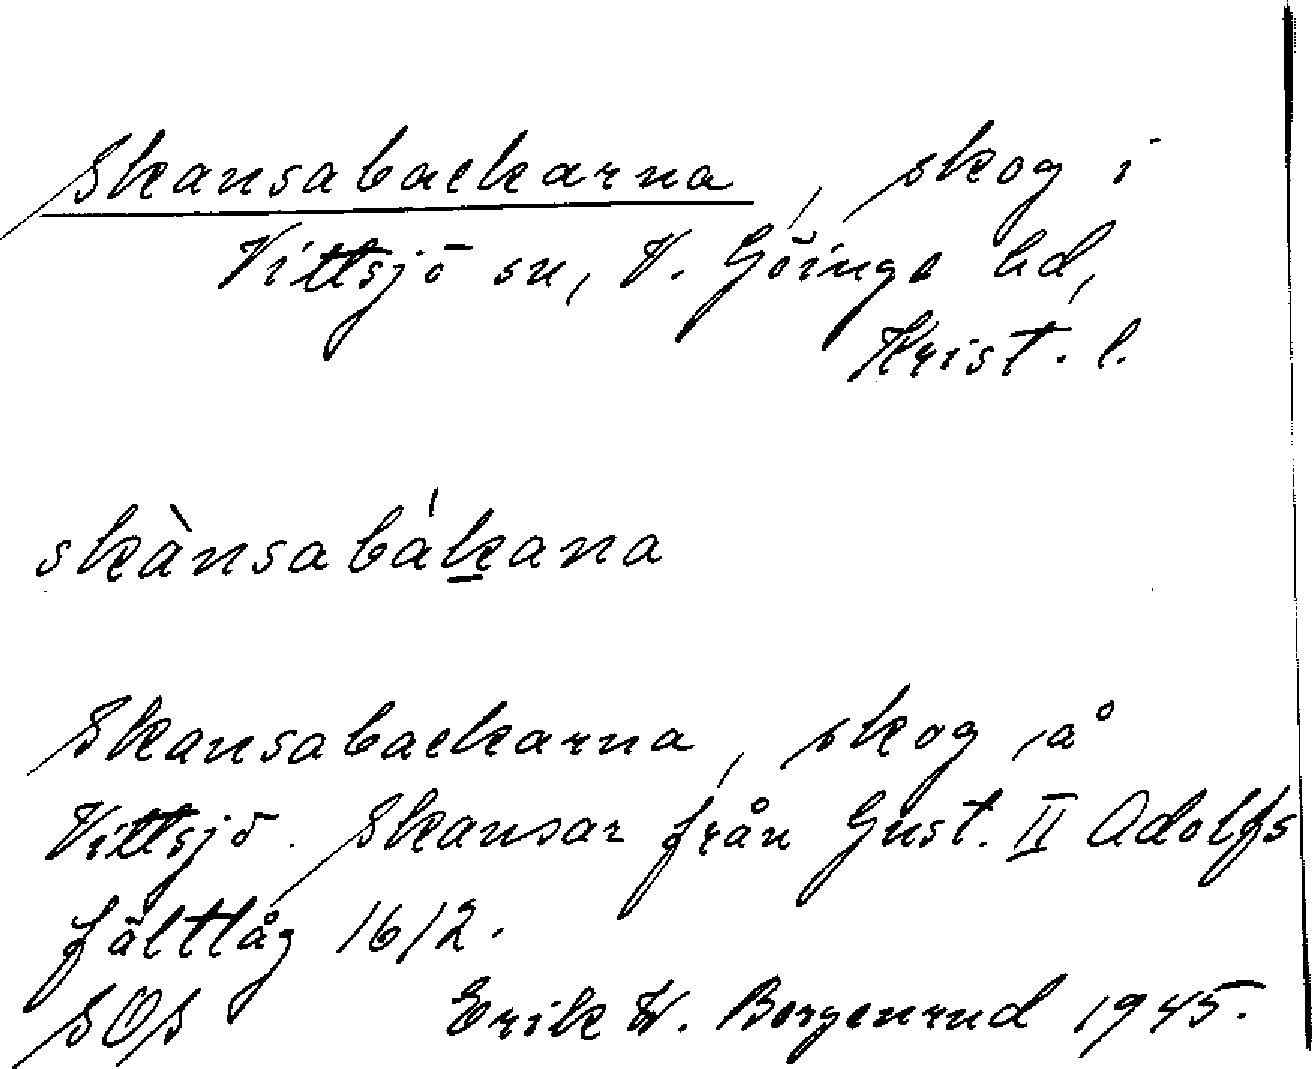 Skansabackarna, skog i
Vittsjö sn, V. Göinge hd,
Krist. l.
skànsabákana
Skansabackarna, skog å
Vittsjö. Skansar från Gust. II Adolfs
fälttåg 1612.
SOS Erik W. Bergenrud 1945.